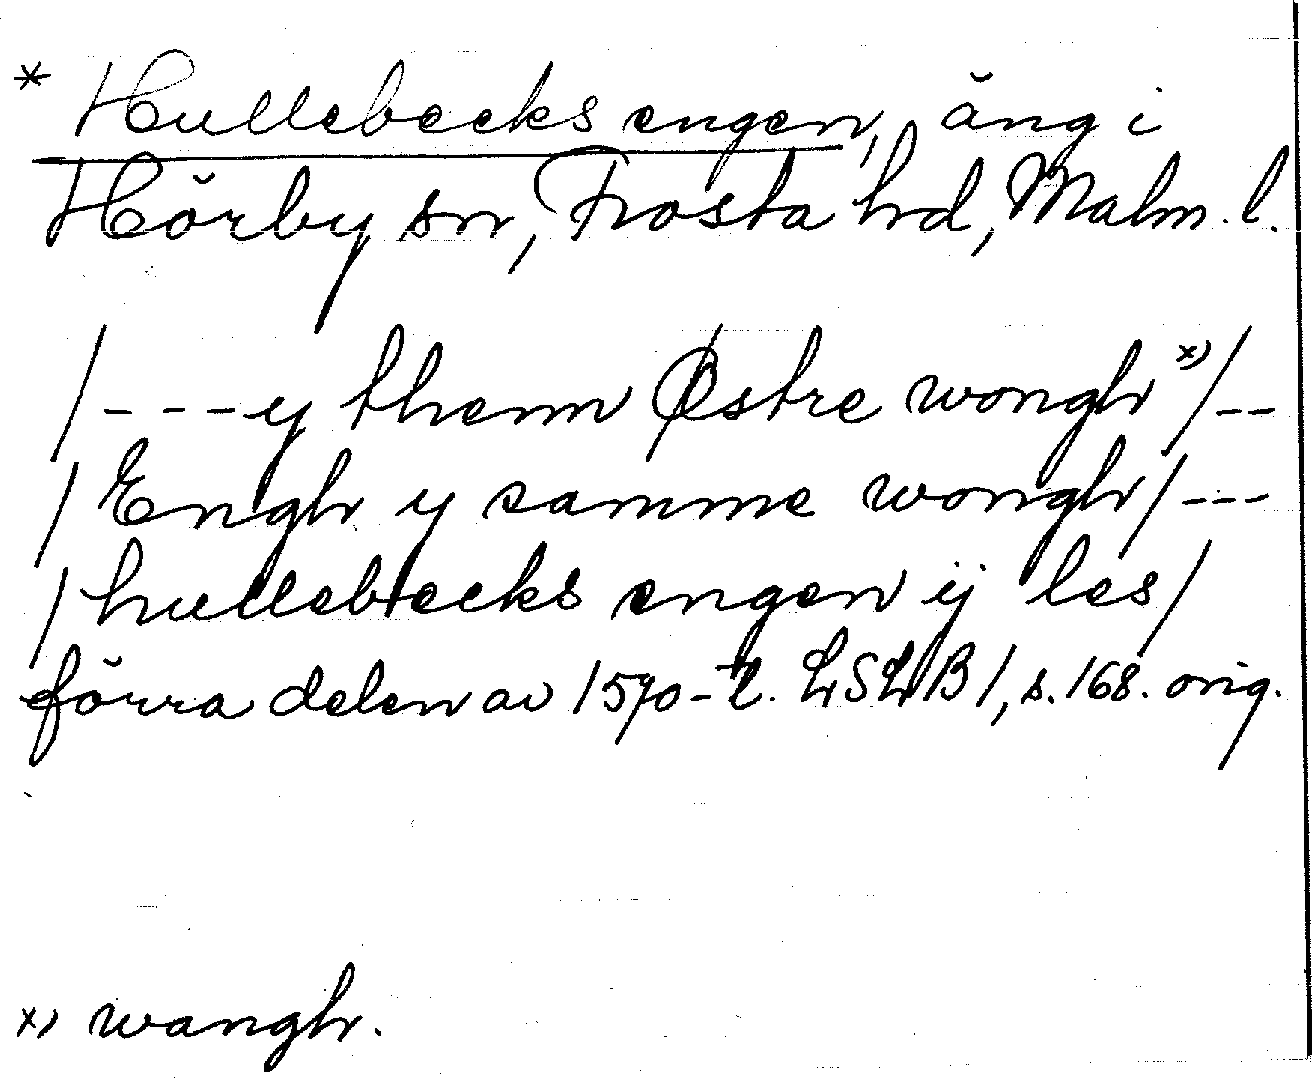 * Hullebecks engen, äng i
Hörby sn, Frosta hd, Malm. l.
/---y thenn Østre wongh x)/--
/Engh y samme wongh/---
/hullebecks engen ij les/
förra delen av 1570-t. LSLB 1, s. 168. orig.
x) wangh.